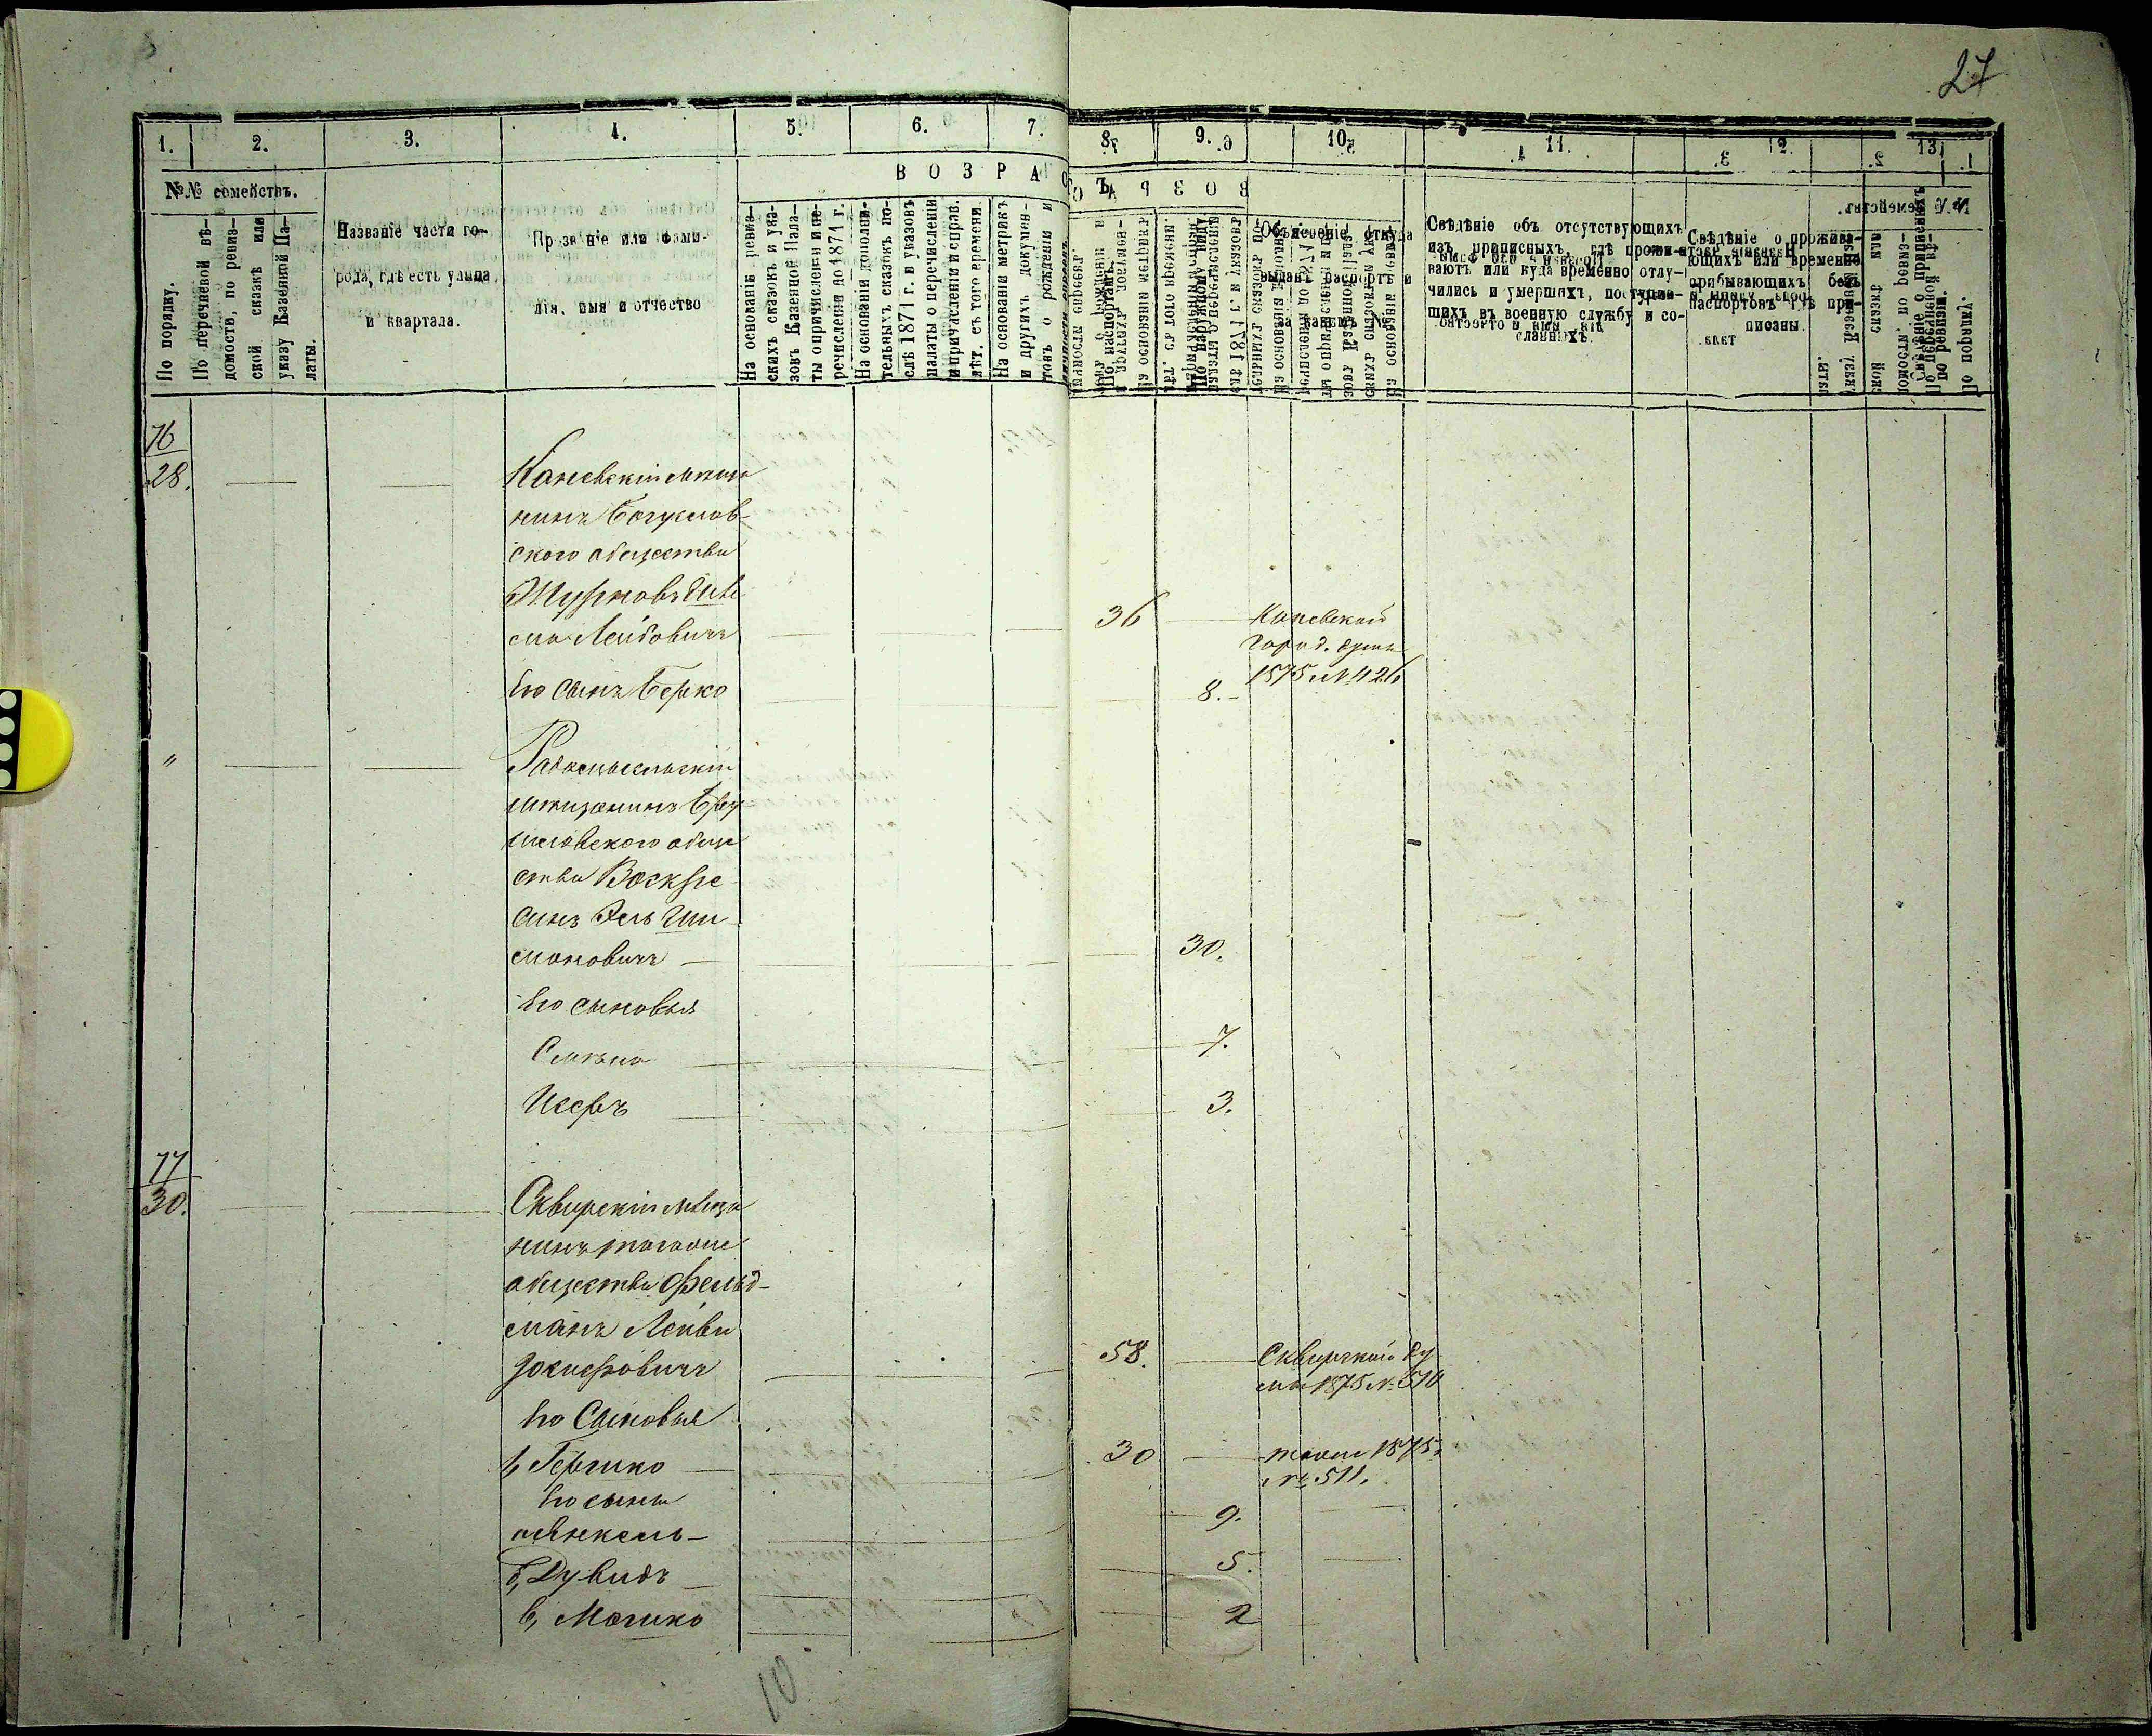 27
1. 2. 3. 4. 5. 6. 7. 8. 9. 10. 11. 12. 13.
ВОЗРАСТЪ
№№ семействъ.
По порядку.
По перечневой вѣ-
домости, по ревиз-
ской сказкѣ или
указу Казенной Па-
латы.
Названіе части го-
рода, гдѣ есть улица
и квартала.
Прозваніе или фами-
лія, имя и отчество
На основаніи ревиз-
скихъ сказокъ и ука-
зовъ Казенной Пала-
ты о причисленіи и пе-
речисленіи до 1871 г.
На основаніи дополни-
тельныхъ сказокъ по-
слѣ 1871 г. и указовъ
палаты о перечисленіи
и причисленіи и справ.
лѣт. съ того времени.
На основаніи метрикъ
и другихъ докумен-
товъ о рожденіи и
По паспортамъ.
По наружному виду
Объясненіе откуда
выданъ паспортъ и
за какимъ №
Свѣдѣніе объ отсутствующихъ
изъ приписныхъ, гдѣ прожи-
ваютъ или куда временно отлу-
чились и умершихъ, поступив-
шихъ въ военную службу и со-
сланныхъ.
Свѣдѣніе о прожива-
ющихъ или временно
прибывающихъ безъ
паспортовъ гдѣ при-
писаны.
Свѣдѣніе о приписныхъ
по ревизіи.
76
28.
Каневскій мѣща
нинъ Богуслав-
ского общества
Журковъ Шле
ма Лейбовичъ
36
Каневской
Город. думы
1875 № 426
Его сынъ Берко
8.
"
Радомысльскій
мѣщанинъ Бру
силовского обще
ства Воскре
синъ Эль Ши
моновичъ
30.
Его сыновья
7.
Исеръ
3.
77
30.
Сквирскій мѣща
нинъ того же
общества Фельд-
манъ Лейви
Іосифовичъ
58.
Сквирской Ду
мы 1875 № 510
Его Сыновья
Гершко
30
тоже 1875
№ 511.
Его сыны
9.
б, Дувидъ
5.
в, Мошко
2
10